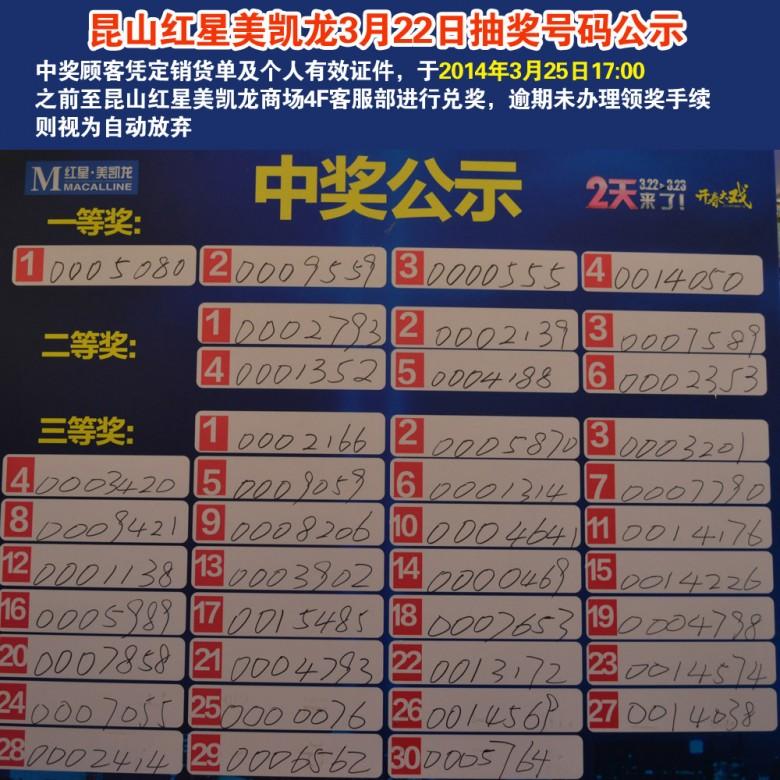 昆山红星美凯龙3月22日抽奖号码公示
中奖顾客凭定销货单及个人有效证件，于2014年3月25日17:00
之前至昆山红星美凯龙商场4F客服部进行兑奖，逾期未办理领奖手续
则视为自动放弃
M 红星·美凯龙
MACALLINE
中奖公示
2天 3.22-3.23
来了!
开春大戏
一等奖:
1 0005080 2 0009559 3 0000555 4 0014050
二等奖:
1 0002793 2 0002139 3 0007589
4 0001352 5 0004188 6 0002353
三等奖:
1 0002166 2 0005870 3 0003201
4 0003420 5 0009059 6 0001314 7 0007790
8 0009421 9 0008206 10 0004641 11 0014176
12 0001138 13 0003902 14 0000469 15 0014226
16 0005989 17 0015485 18 0007653 19 0004798
20 0007858 21 0004793 22 0013172 23 0014574
24 0007055 25 0000076 26 0014569 27 0014038
28 0002414 29 0006562 30 0005764